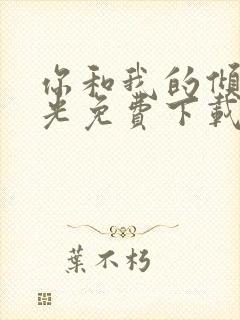 你和我的倾
光免費下載
葉不朽